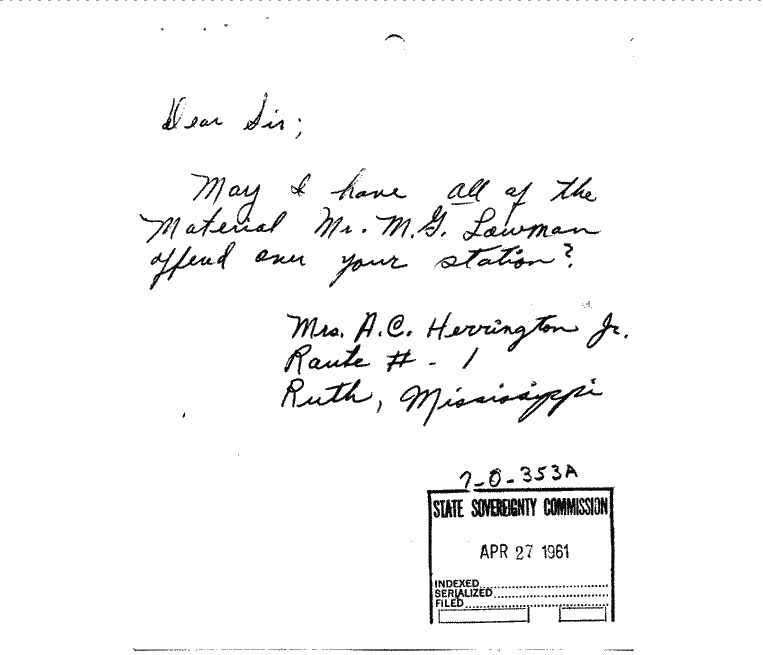 Dear Sir;
May I have all of the
Material Mr. M.G. Lowman
offend over your station?
Mrs. A.C. Herrington Jr.
Route # - 1
Ruth, Mississippi
7-0-353A
STATE SOVEREIGNTY COMMISSION
APR 27 1961
INDEXED
SERIALIZED
FILED